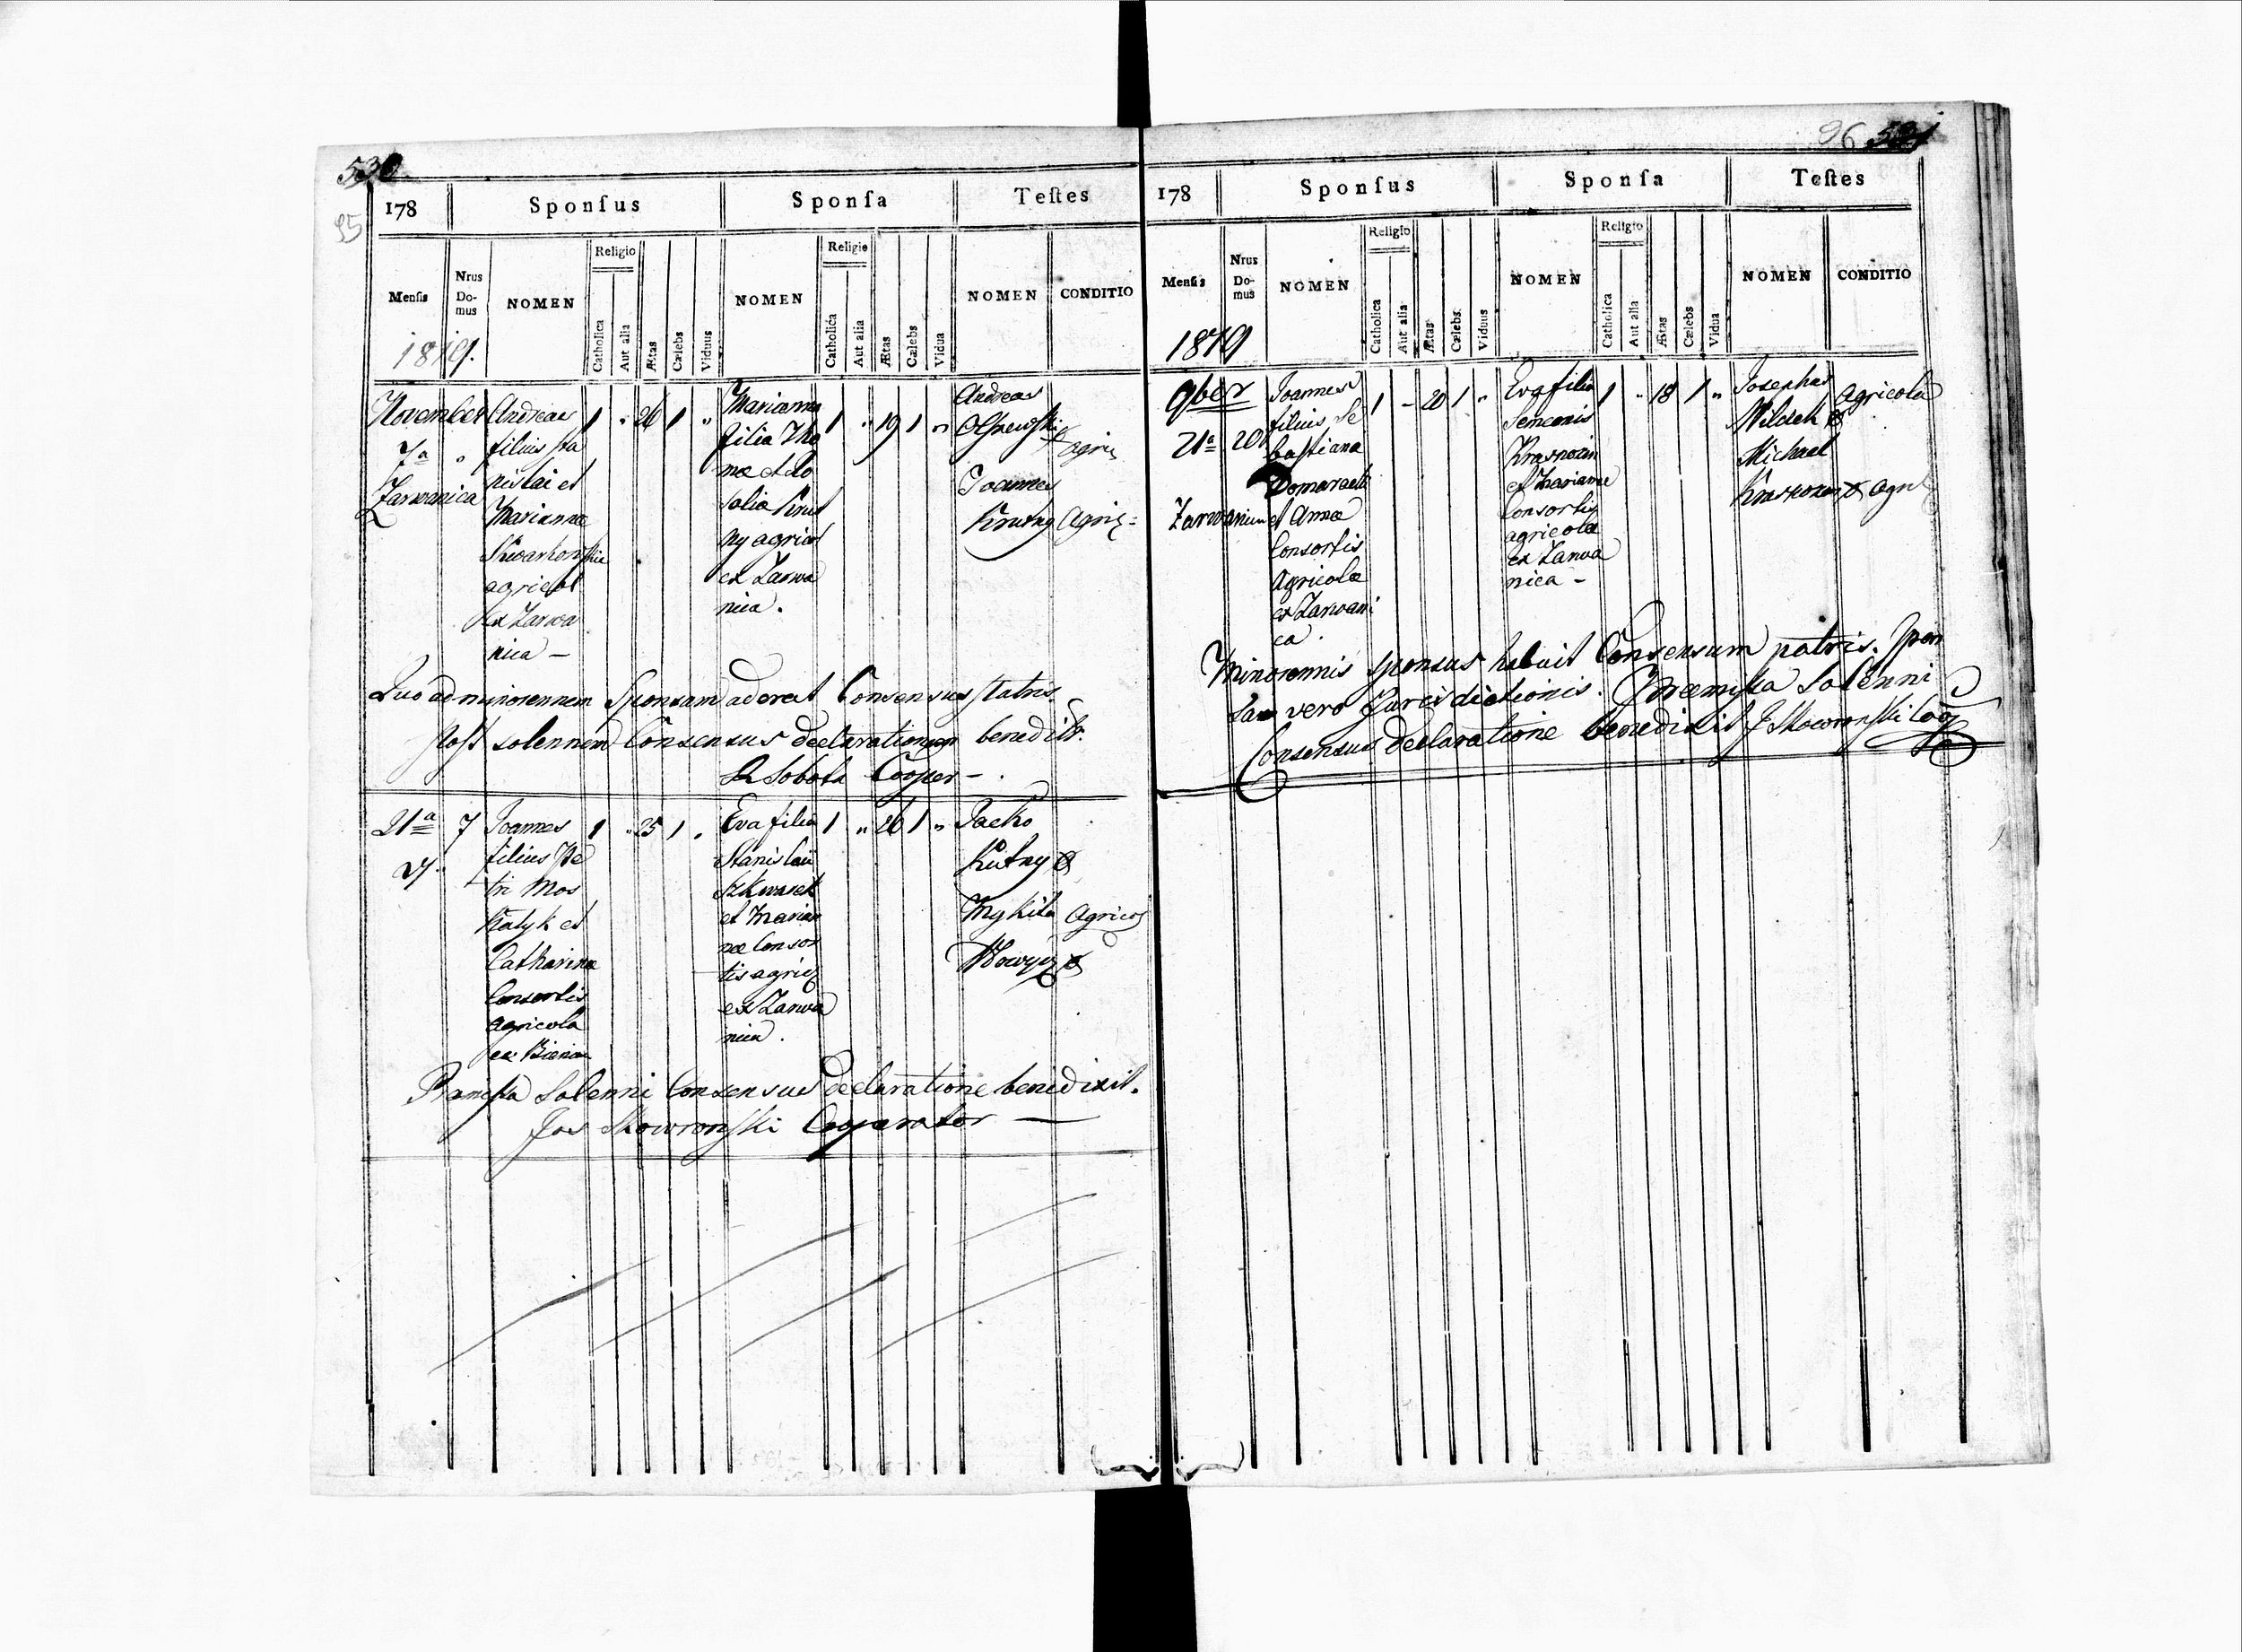 530
95
178
Sponſus
Sponſa
Teſtes
Menſis
Nrus
Do-
mus
NOMEN
Religio
Catholica
Aut alia
Ætas
Cælebs
Viduus
NOMEN
Religio
Catholica
Aut alia
Ætas
Cælebs
Vidua
NOMEN
CONDITIO
1819.
November
7a
Zarwanica
Andreas
filius
et
Marianna
agricol
ex Zarwa
nica –
1 " 26 1 "
Marianna
filia Tho
mæ et Ro
salia Krut
ny agricol
ex Zarwa
nica.
1 " 19 1 "
Andreas
Olszewski
Joannes
Krutny Agric:
Quoad minorennem Sponsam aderat Consensus Patris.
Post solennem Consensus declarationem benedixt.
Sobota Cooper – .
21a 7
Joannes
filius Pe
tri Mos
katyk et
Catharinæ
Consortis
agricola
ex
1 " 25 1 "
Eva filia
Stanislai
Szkwarek
et Marian
næ Consor
tis agric
ex Zarwa
nica.
1 " 26 1 "
Jacko
Kutny
Mykita Agricol
Præmissa Solenni Consensus declaratione benedixit.
Jos Skowronſki Cooperator —
96 531
178
Sponſus
Sponſa
Teſtes
Menſis
Nrus
Do-
mus
NOMEN
Religio
Catholica
Aut alia
Ætas
Cælebs
Viduus
NOMEN
Religio
Catholica
Aut alia
Ætas
Cælebs
Vidua
NOMEN
CONDITIO
1819
9ber
21a 20
Joannes
filius Se
bastiana
Domaracki
et Annæ
Consortis
Agricolæ
ex Zarwani
ca.
1 – 20 1 "
Eva filia
Semeonis
et Mariannæ
Consortis
agricolæ
ex Zarwa
nica –
1 " 18 1 "
Josephus Agricola
Michael
Minorennis sponsus habuit Consensum patris. Spon
sa vero Jurisdictionis. Præmissa Solenni
Consensus declaratione benedixit J Skowronſki Coop